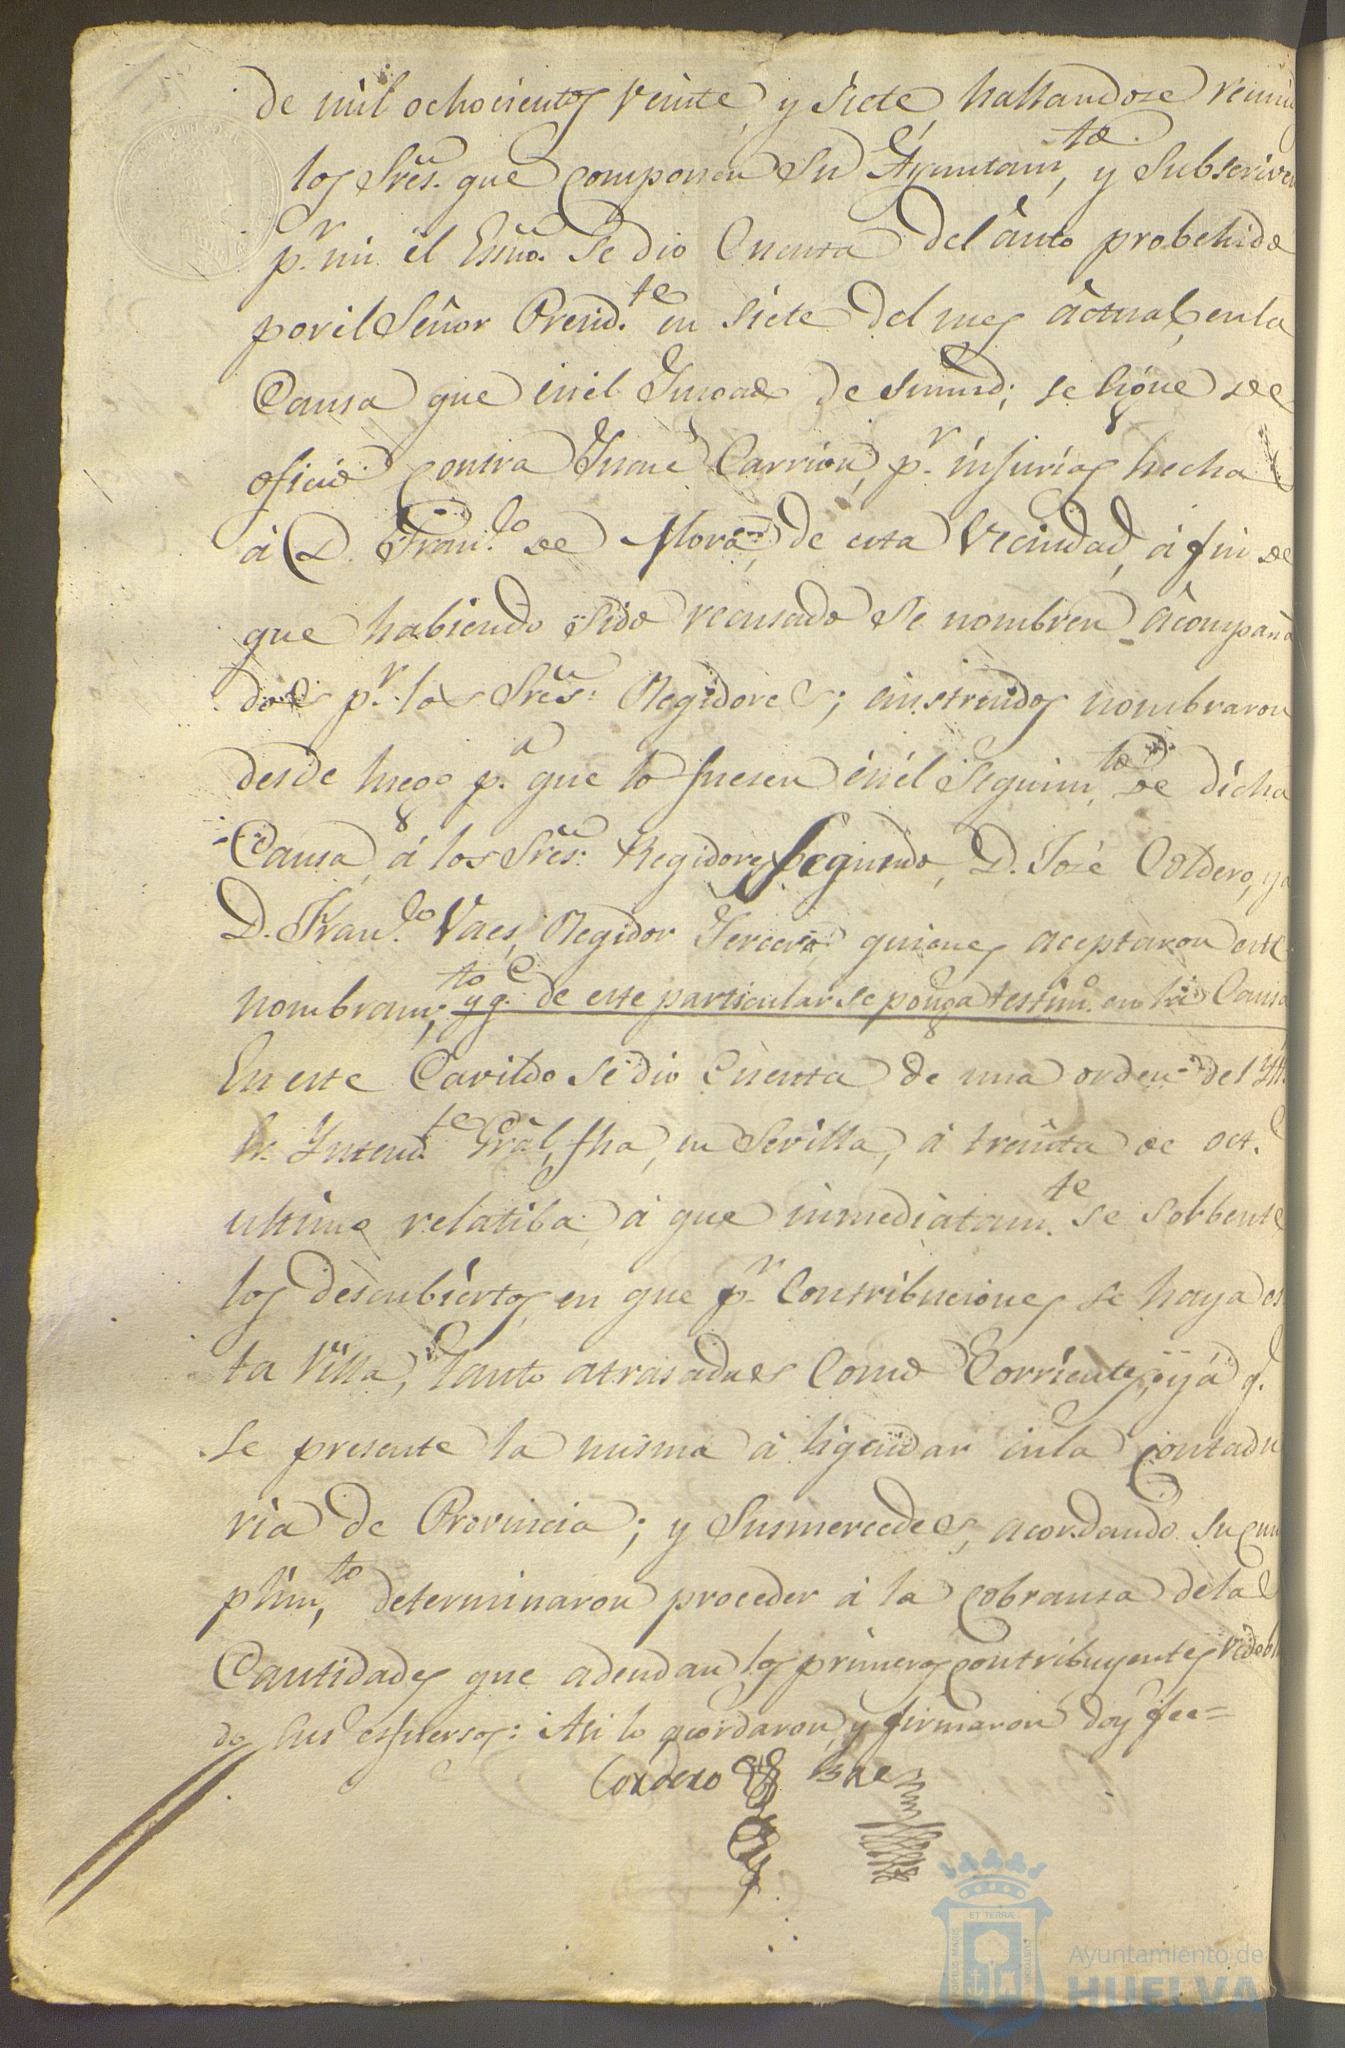 de mil ochocientos veinte, y siete, hallandose reuni
los Sres. que componen su Ayuntamto. y subscriven
pr. mi el Essno. se dio Cuenta del auto probehido
por el Señor Presidte. en siete del mes actual, en la
Causa que en el Jusgado de se sigue de
oficio contra Carrion, pr. injurias hecha
à D. Franco. de Mora, de esta Vecindad, à fin de
que habiendo sido recusado se nombren acompaña
dos pr. los Sres. Regidores; è instruidos nombraron
desde luego pa. que lo fuesen en el seguimto. de dicha
Causa, á los Sres. Regidores Segundo, D. José Cordero, y a
D. Franco. Vaes, Regidor Tercero quienes aceptaron este
nombramto. y qe. de este particular se ponga testimo. en la Causa
En este Cavildo se dio Cuenta de una orden del
Sr. Intendte. Gral, fha, en Sevilla, à treinta de Oct.e
ultimo relatiba, à que inmediatamte. se solbente
los descubiertos, en que pr. Contribuciones se haya es
ta Villa, tanto atrasadas Como Corrientes, y á q.e
se presente la misma à liquidar en la Contadu
ria de Provincia; y Susmercedes, acordando su cum
plimto, determinaron proceder à la cobransa de las
Cantidades que adeudan los primeros contribuyentes redoblan
do sus esfuersos: Asi lo acordaron, y firmaron doy fee=
Cordero Vaes
PORTUS MARIS
ET TERRÆ
CUSTODIA
Ayuntamiento de
HUELVA